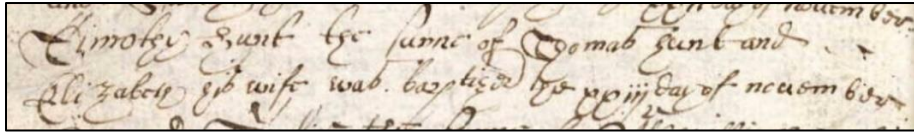 day of november
Timothy Hunt the sunne of Thomas Hunt and
Elizabeth his wife was baptized the xxiij day of november